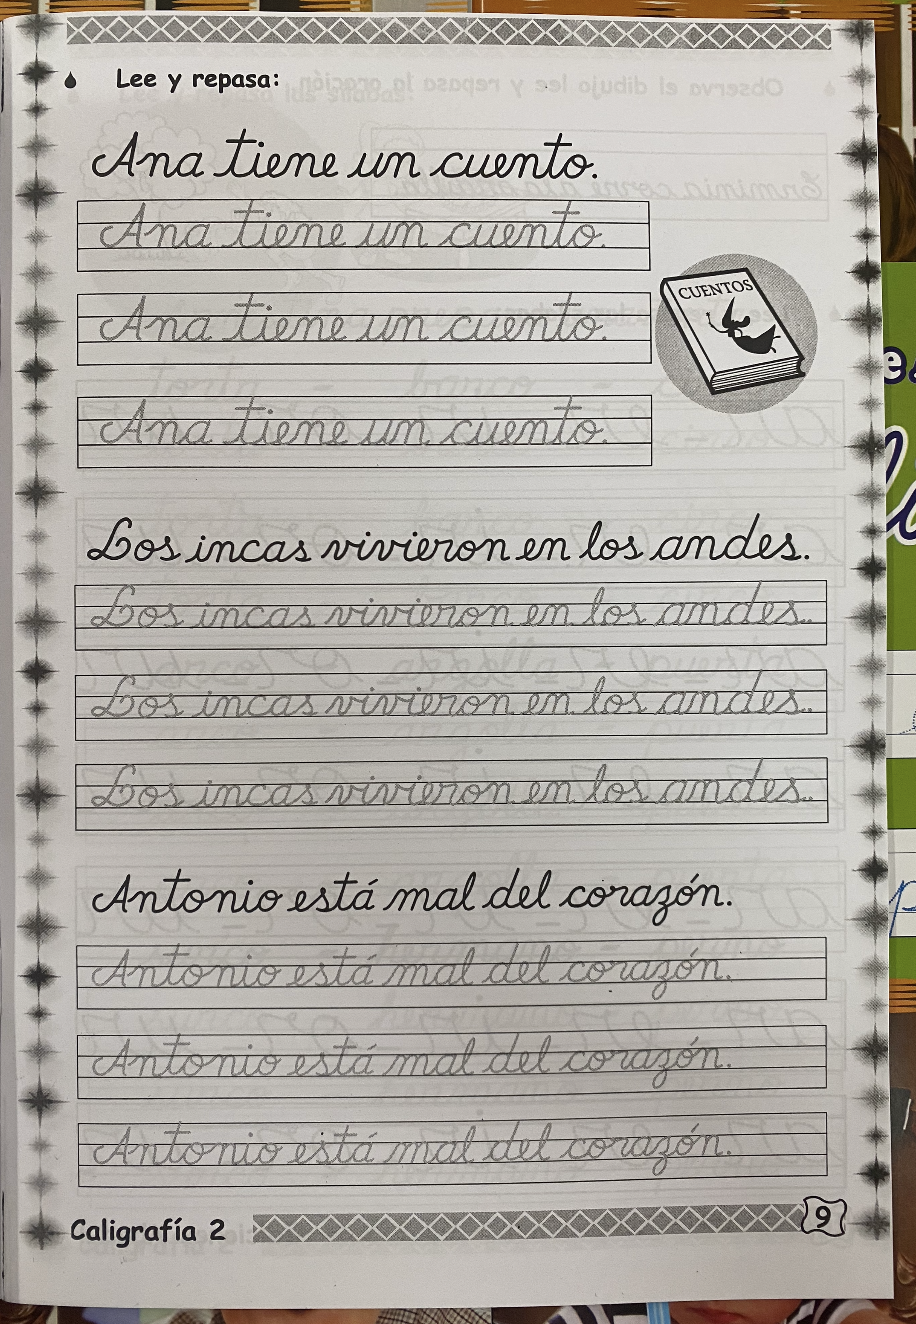 Lee y repasa:
Ana tiene un cuento.
Ana tiene un cuento.
Ana tiene un cuento.
CUENTOS
Ana tiene un cuento.
Los incas vivieron en los andes.
Los incas vivieron en los andes.
Los incas vivieron en los andes.
Los incas vivieron en los andes.
Antonio está mal del corazón.
Antonio está mal del corazón.
Antonio está mal del corazón.
Antonio está mal del corazón.
Caligrafía 2
9